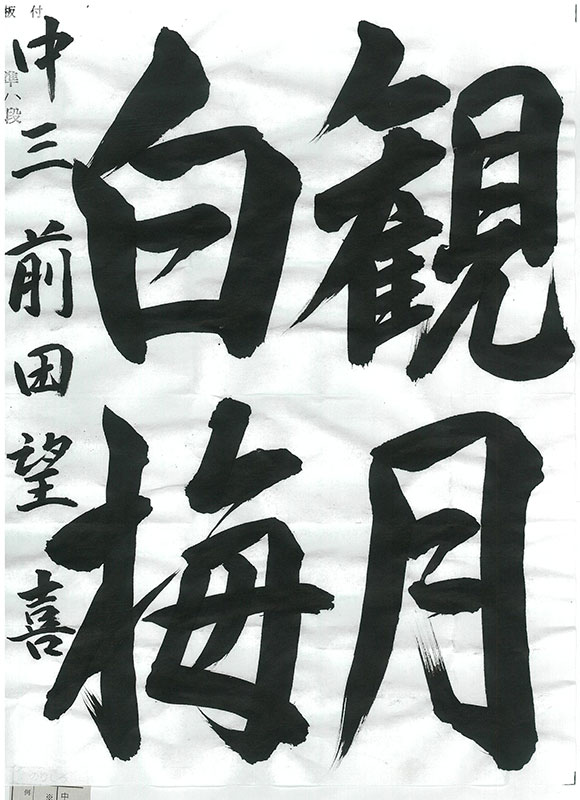 観月
白梅
中三 前田望喜
準八段
板付
中
※